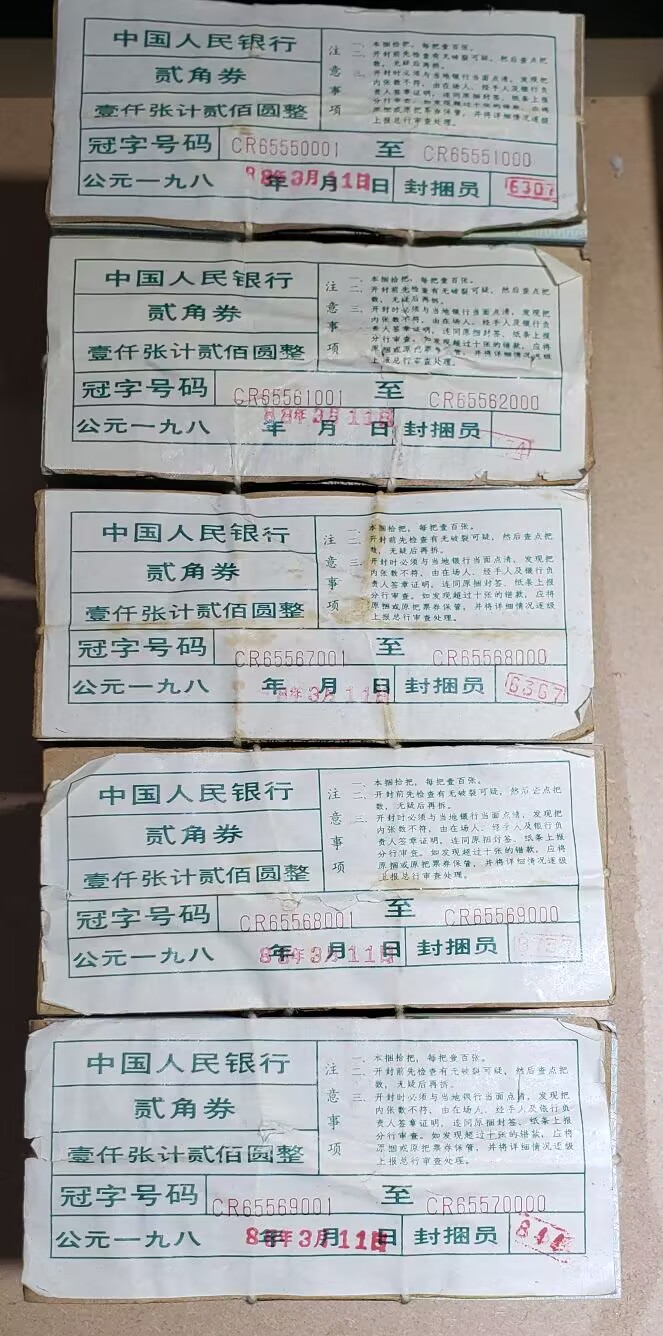 中国人民银行
贰角券
壹仟张计贰佰圆整
注意事项
一、本捆拾把，每把壹百张。
二、开封前先检查有无破裂可疑，然后查点把
数，无疑后再拆。
三、开封时必须与当地银行当面点清，发现把
内张数不符，由在场人、经手人及银行负
责人签章证明，连同原捆封签、纸条上报
分行审查。如发现超过十张的错款，应将
原捆或原把票券保管，并将详细情况逐级
上报总行审查处理。
冠字号码 CR65550001 至 CR65551000
公元一九八 88年3月11日 年 月 日 封捆员 6307
中国人民银行
贰角券
壹仟张计贰佰圆整
注意事项
一、本捆拾把，每把壹百张。
二、开封前先检查有无破裂可疑，然后查点把
数，无疑后再拆。
三、开封时必须与当地银行当面点清，发现把
内张数不符，由在场人、经手人及银行负
责人签章证明，连同原捆封签、纸条上报
分行审查。如发现超过十张的错款，应将
原捆或原把票券保管，并将详细情况逐级
上报总行审查处理。
冠字号码 CR65561001 至 CR65562000
公元一九八 88年3月11日 年 月 日 封捆员
中国人民银行
贰角券
壹仟张计贰佰圆整
注意事项
一、本捆拾把，每把壹百张。
二、开封前先检查有无破裂可疑，然后查点把
数，无疑后再拆。
三、开封时必须与当地银行当面点清，发现把
内张数不符，由在场人、经手人及银行负
责人签章证明，连同原捆封签、纸条上报
分行审查。如发现超过十张的错款，应将
原捆或原把票券保管，并将详细情况逐级
上报总行审查处理。
冠字号码 CR65567001 至 CR65568000
公元一九八 年3月11日 年 月 日 封捆员 6367
中国人民银行
贰角券
壹仟张计贰佰圆整
注意事项
一、本捆拾把，每把壹百张。
二、开封前先检查有无破裂可疑，然后查点把
数，无疑后再拆。
三、开封时必须与当地银行当面点清，发现把
内张数不符，由在场人、经手人及银行负
责人签章证明，连同原捆封签、纸条上报
分行审查。如发现超过十张的错款，应将
原捆或原把票券保管，并将详细情况逐级
上报总行审查处理。
冠字号码 CR65568001 至 CR65569000
公元一九八 88年3月11日 年 月 日 封捆员
中国人民银行
贰角券
壹仟张计贰佰圆整
注意事项
一、本捆拾把，每把壹百张。
二、开封前先检查有无破裂可疑，然后查点把
数，无疑后再拆。
三、开封时必须与当地银行当面点清，发现把
内张数不符，由在场人、经手人及银行负
责人签章证明，连同原捆封签、纸条上报
分行审查。如发现超过十张的错款，应将
原捆或原把票券保管，并将详细情况逐级
上报总行审查处理。
冠字号码 CR65569001 至 CR65570000
公元一九八 88年3月11日 年 月 日 封捆员 844